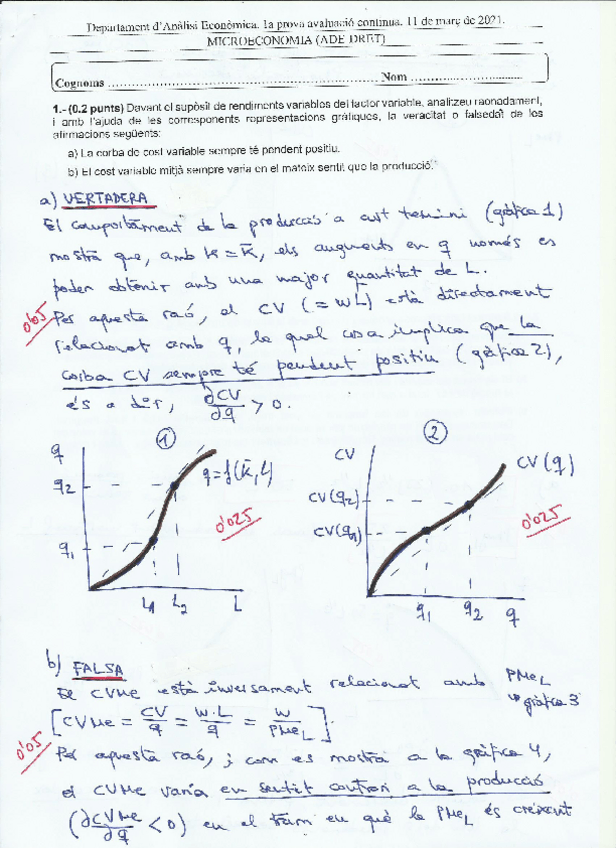 Departament d'Anàlisi Econòmica. 1a prova avaluació continua. 11 de març de 2021.
MICROECONOMIA (ADE DRET)
Cognoms ........................................................................ Nom ..............................
1.- (0.2 punts) Davant el supòsit de rendiments variables del factor variable, analitzeu raonadament,
i amb l'ajuda de les corresponents representacions gràfiques, la veracitat o falsedat de les
afirmacions següents:
a) La corba de cost variable sempre té pendent positiu.
b) El cost variable mitjà sempre varia en el mateix sentit que la producció.
a) VERTADERA
El comportament de la producció a curt termini (gràfica 1)
mostra que, amb K = K̄, els augments en q només es
poden obtenir amb una major quantitat de L.
0'05
Per aquesta raó, el CV (= wL) està directament
relacionat amb q, la qual cosa implica que la
corba CV sempre té pendent positiu (gràfica 2),
és a dir, ∂CV/∂q > 0.
1
q
q2
q1
q = f(K̄, L)
0'025
L1 L2 L
2
CV
CV(q2)
CV(q1)
CV(q)
0'025
q1 q2 q
b) FALSA
El CVMe està inversament relacionat amb PMeL
gràfica 3
[CVMe = CV/q = W·L/q = W/PMeL].
0'05
Per aquesta raó, i com es mostra a la gràfica 4,
el CVMe varia en sentit contrari a la producció
(∂CVMe/∂q < 0) en el tram en què la PMeL és creixent